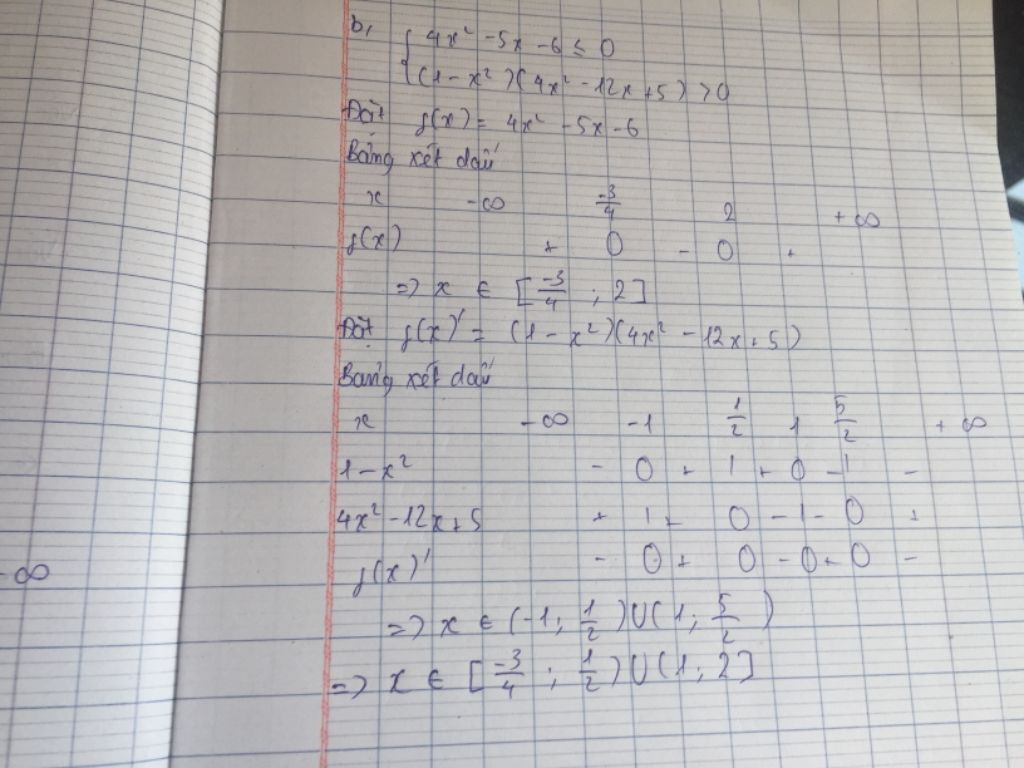 b, { 4x² - 5x - 6 ≤ 0
(1 - x²)(4x² - 12x + 5) > 0
Đặt f(x) = 4x² - 5x - 6
Bảng xét dấu
x -∞ -3/4 2 +∞
f(x) + 0 - 0 +
=> x ∈ [-3/4 ; 2]
Đặt f(x)' = (1 - x²)(4x² - 12x + 5)
Bảng xét dấu
x -∞ -1 1/2 1 5/2 +∞
1 - x² - 0 + | + 0 - | -
4x² - 12x + 5 + | + 0 - | - 0 +
-∞
f(x)' - 0 + 0 - 0 + 0 -
=> x ∈ (-1; 1/2) ∪ (1; 5/2)
=> x ∈ [-3/4 ; 1/2) ∪ (1; 2]